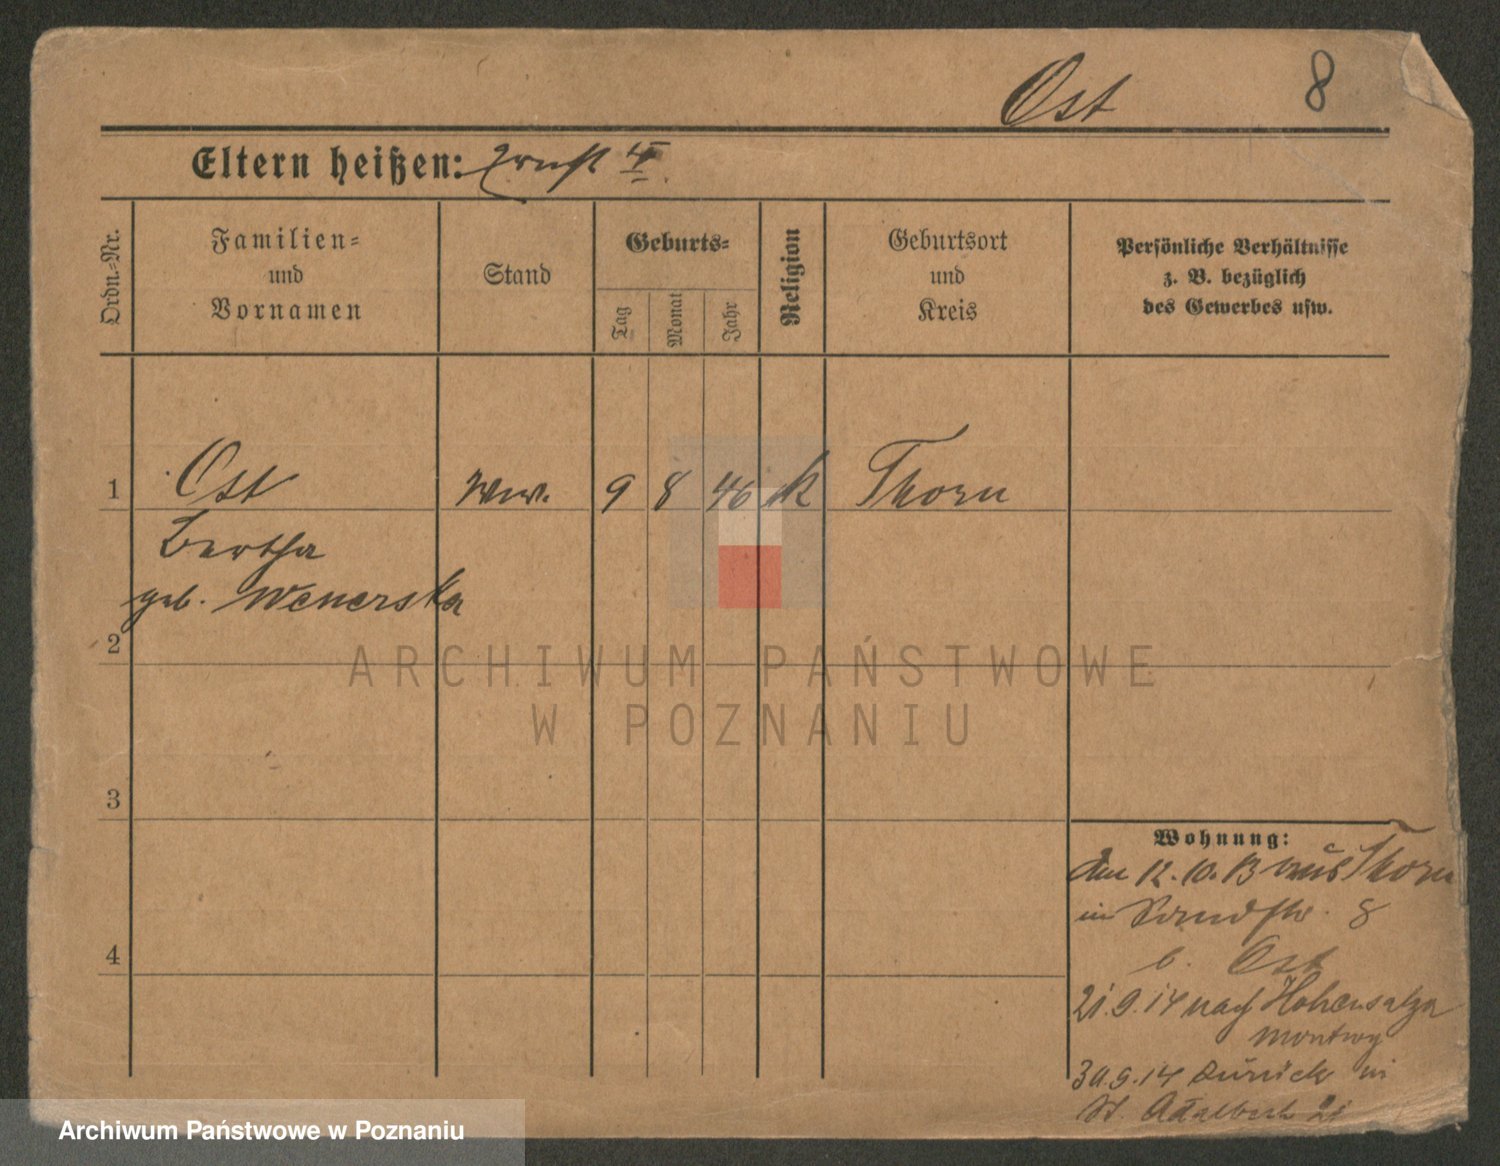 Ost 8
Eltern heißen: Ernst
Ordn.-Nr.
Familien-
und
Vornamen
Stand
Geburts-
Tag
Monat
Jahr
Religion
Geburtsort
und
Kreis
Persönliche Verhältnisse
z. B. bezüglich
des Gewerbes usw.
1 Ost Ww. 9 8 46 k Thorn
Bertha
geb. Wenerska
2
ARCHIWUM PAŃSTWOWE
W POZNANIU
3
Wohnung:
Am 12.10.13 aus Thorn
in Sandstr. 8
b. Ost
4
21.9.14 nach Hohensalza
Montwy
30.9.14 zurück in
St. Adalbert 21
Archiwum Państwowe w Poznaniu